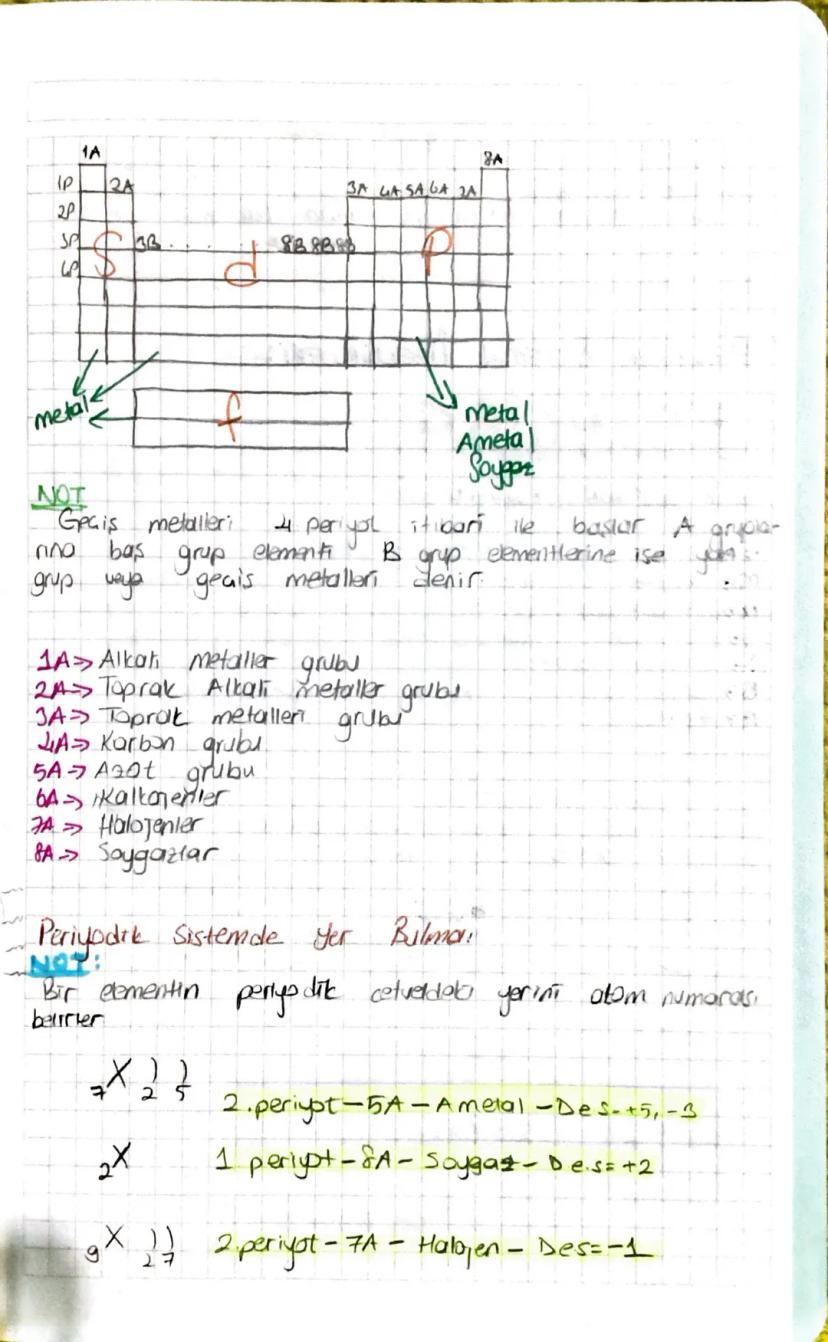 1A
8A
1P 2A 3A 4A 5A 6A 7A
2P
3P S 3B . . . . d 8B 8B 8B P
4P
f
metal
Metal
Ametal
Soygaz
NOT
Geçiş metalleri 4 periyot itibari ile başlar A grupla-
rına baş grup elementi B grup elementlerine ise yan
grup veya geçiş metalleri denir.
1A => Alkali metaller grubu
2A => Toprak Alkali metaller grubu
3A => Toprak metalleri grubu
4A => Karbon grubu
5A -> Azot grubu
6A -> Kalkojenler
7A => Halojenler
8A -> Soygazlar
Periyodik Sistemde Yer Bulma:
NOT:
Bir elementin periyodik cetveldeki yerini atom numarası
belirler
7X ) ) 2 5 2.periyot - 5A - Ametal - Des = +5, -3
2X 1 periyot - 8A - Soygaz - D e.s = +2
9X ) ) 2 7 2.periyot - 7A - Halojen - Des = -1